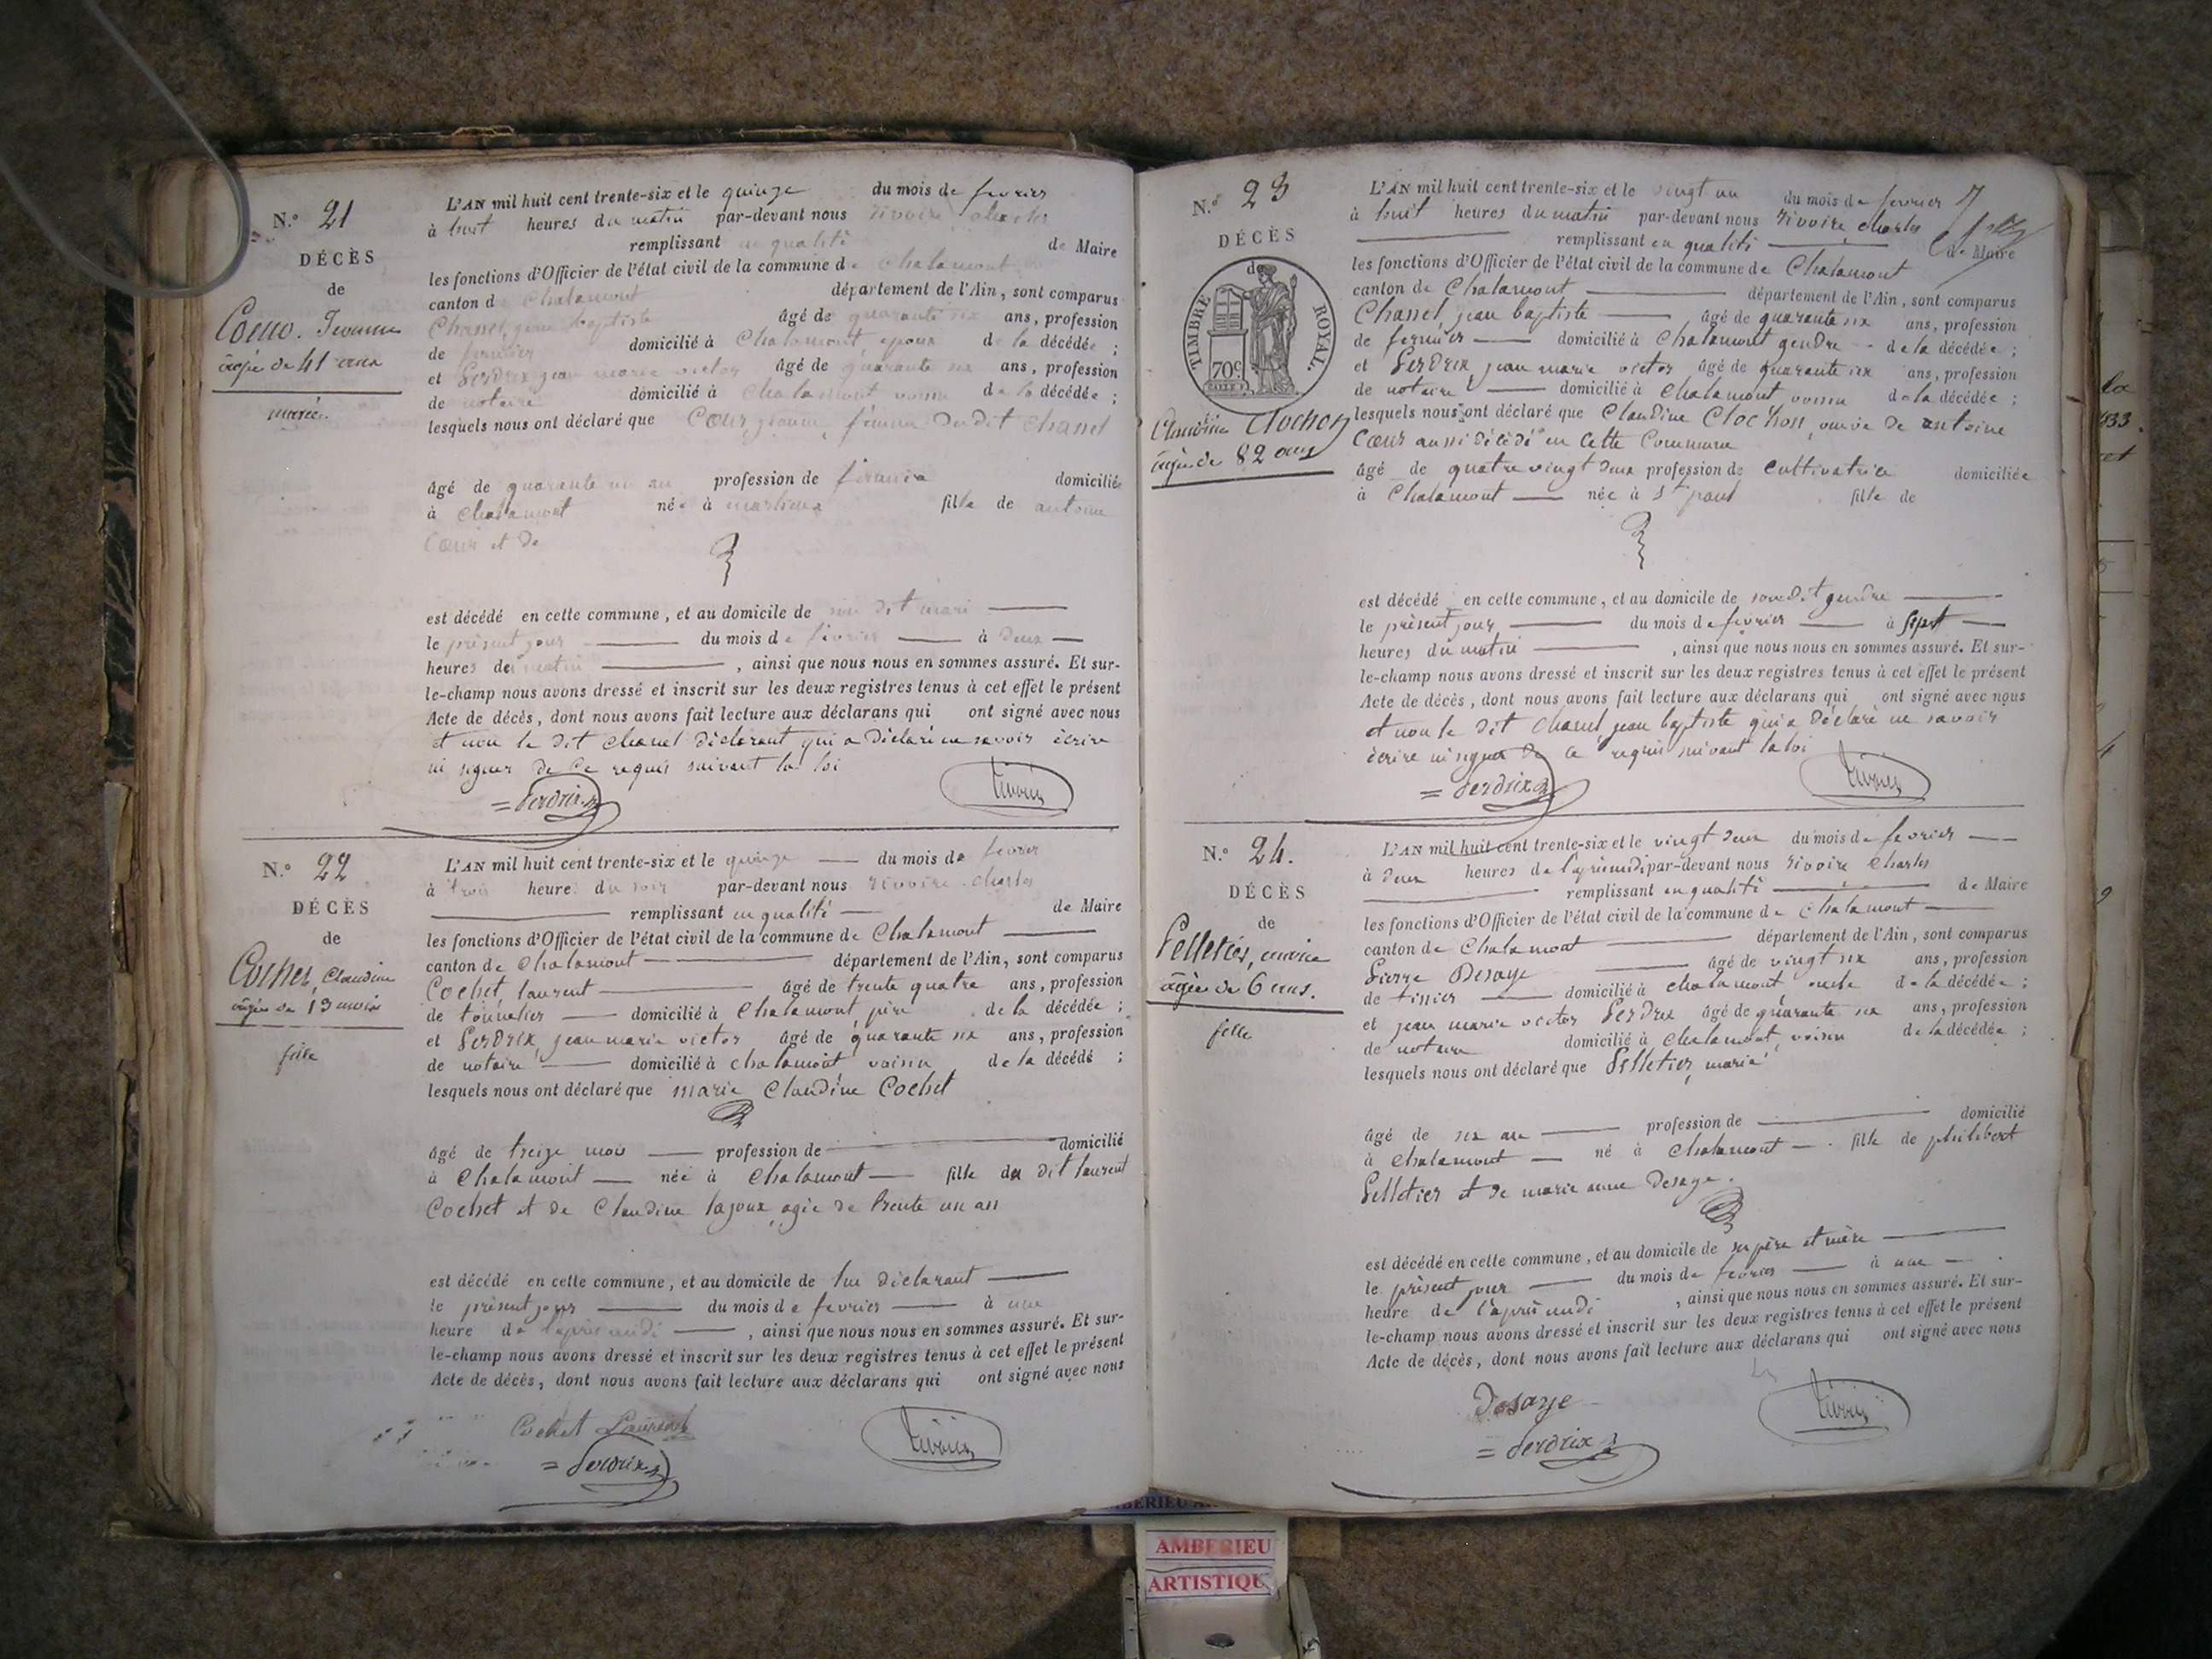 N.° 21
DÉCÈS
de
Coeur. Jeanne
âgée de 41 ans
mariée
L'AN mil huit cent trente-six et le quinze du mois de fevrier
à huit heures du matin par-devant nous rivoire charles
remplissant en qualité de Maire
les fonctions d'Officier de l'état civil de la commune de Chalamont
canton de Chalamont département de l'Ain, sont comparus
Chanel, jean baptiste âgé de quarante six ans, profession
de fermier domicilié à Chalamont epoux de la décédée ;
et Perdrix jean marie victor âgé de quarante six ans, profession
de notaire domicilié à Chalamont voisin de la décédée ;
lesquels nous ont déclaré que Cœur jeanne femme dudit Chanel
âgé de quarante un an profession de domiciliée
à Chalamont née à fille de antoine
Cœur et de
est décédé en cette commune, et au domicile de son dit mari
le présent jour du mois de février à deux
heures du matin , ainsi que nous nous en sommes assuré. Et sur-
le-champ nous avons dressé et inscrit sur les deux registres tenus à cet effet le présent
Acte de décès, dont nous avons fait lecture aux déclarans qui ont signé avec nous
et non le dit Chanel déclarant qui a déclaré ne savoir écrire
ni signer de ce requis suivant la loi
= Perdrix
rivoire
N.° 22
DÉCÈS
de
Cochet, Claudine
âgée de 13 mois
fille
L'AN mil huit cent trente-six et le quinze du mois de fevrier
à trois heure du soir par-devant nous rivoire charles
remplissant en qualité de Maire
les fonctions d'Officier de l'état civil de la commune de Chalamont
canton de Chalamont département de l'Ain, sont comparus
Cochet, laurent âgé de trente quatre ans, profession
de tonnelier domicilié à Chalamont, père de la décédée ;
et Perdrix, jean marie victor âgé de quarante six ans, profession
de notaire domicilié à chalamont voisin de la décédé ;
lesquels nous ont déclaré que marie Claudine Cochet
âgé de treize mois profession de domicilié
à Chalamont née à Chalamont fille du dit laurent
Cochet et de Claudine lajoux agée de trente un an
est décédé en cette commune, et au domicile de lui déclarant
le présent jour du mois de fevrier à une
heure de l'après midi , ainsi que nous nous en sommes assuré. Et sur-
le-champ nous avons dressé et inscrit sur les deux registres tenus à cet effet le présent
Acte de décès, dont nous avons fait lecture aux déclarans qui ont signé avec nous
Cochet Laurent
= Perdrix
rivoire
N.° 23
DÉCÈS
de
TIMBRE ROYAL.
70c
Claudine Clochon
âgée de 82 ans
L'AN mil huit cent trente-six et le vingt un du mois de fevrier
à huit heures du matin par-devant nous rivoire, charles
remplissant en qualité de Maire
les fonctions d'Officier de l'état civil de la commune de Chalamont
canton de Chalamont département de l'Ain, sont comparus
Chanel jean baptiste âgé de quarante six ans, profession
de fermier domicilié à Chalamont gendre de la décédée ;
et Perdrix, jean marie victor âgé de quarante six ans, profession
de notaire domicilié à Chalamont, voisin de la décédée ;
lesquels nous ont déclaré que Claudine Clochon, veuve de antoine
Cœur aussi décédé en cette Commune
âgé de quatre vingt deux profession de cultivatrice domiciliée
à Chalamont née à St paul fille de
est décédé en cette commune, et au domicile de son dit gendre
le présent jour du mois de fevrier à sept
heures du matin , ainsi que nous nous en sommes assuré. Et sur-
le-champ nous avons dressé et inscrit sur les deux registres tenus à cet effet le présent
Acte de décès, dont nous avons fait lecture aux déclarans qui ont signé avec nous
et non le dit Chanel jean baptiste qui a déclaré ne savoir
écrire ni signer de ce requis suivant la loi
= Perdrix
rivoire
N.° 24.
DÉCÈS
de
Pelletier, marie
âgée de 6 ans.
fille
L'AN mil huit cent trente-six et le vingt deux du mois de fevrier
à deux heures de l'aprèsmidi par-devant nous rivoire Charles
remplissant en qualité de Maire
les fonctions d'Officier de l'état civil de la commune de Chalamont
canton de Chalamont département de l'Ain, sont comparus
Pierre Desaye âgé de vingt six ans, profession
de tissier domicilié à chalamont oncle de la décédée ;
et jean marie victor Perdrix âgé de quarante six ans, profession
de notaire domicilié à Chalamont, voisin de la décédée ;
lesquels nous ont déclaré que Pelletier, marie
âgé de six an profession de domicilié
à chalamont né à Chalamont fille de philibert
Pelletier et de marie anne Desaye.
est décédé en cette commune, et au domicile de ses père et mère
le présent jour du mois de fevrier à une
heure de l'après midi , ainsi que nous nous en sommes assuré. Et sur-
le-champ nous avons dressé et inscrit sur les deux registres tenus à cet effet le présent
Acte de décès, dont nous avons fait lecture aux déclarans qui ont signé avec nous
Desaye
= Perdrix
rivoire
AMBERIEU
ARTISTIQU